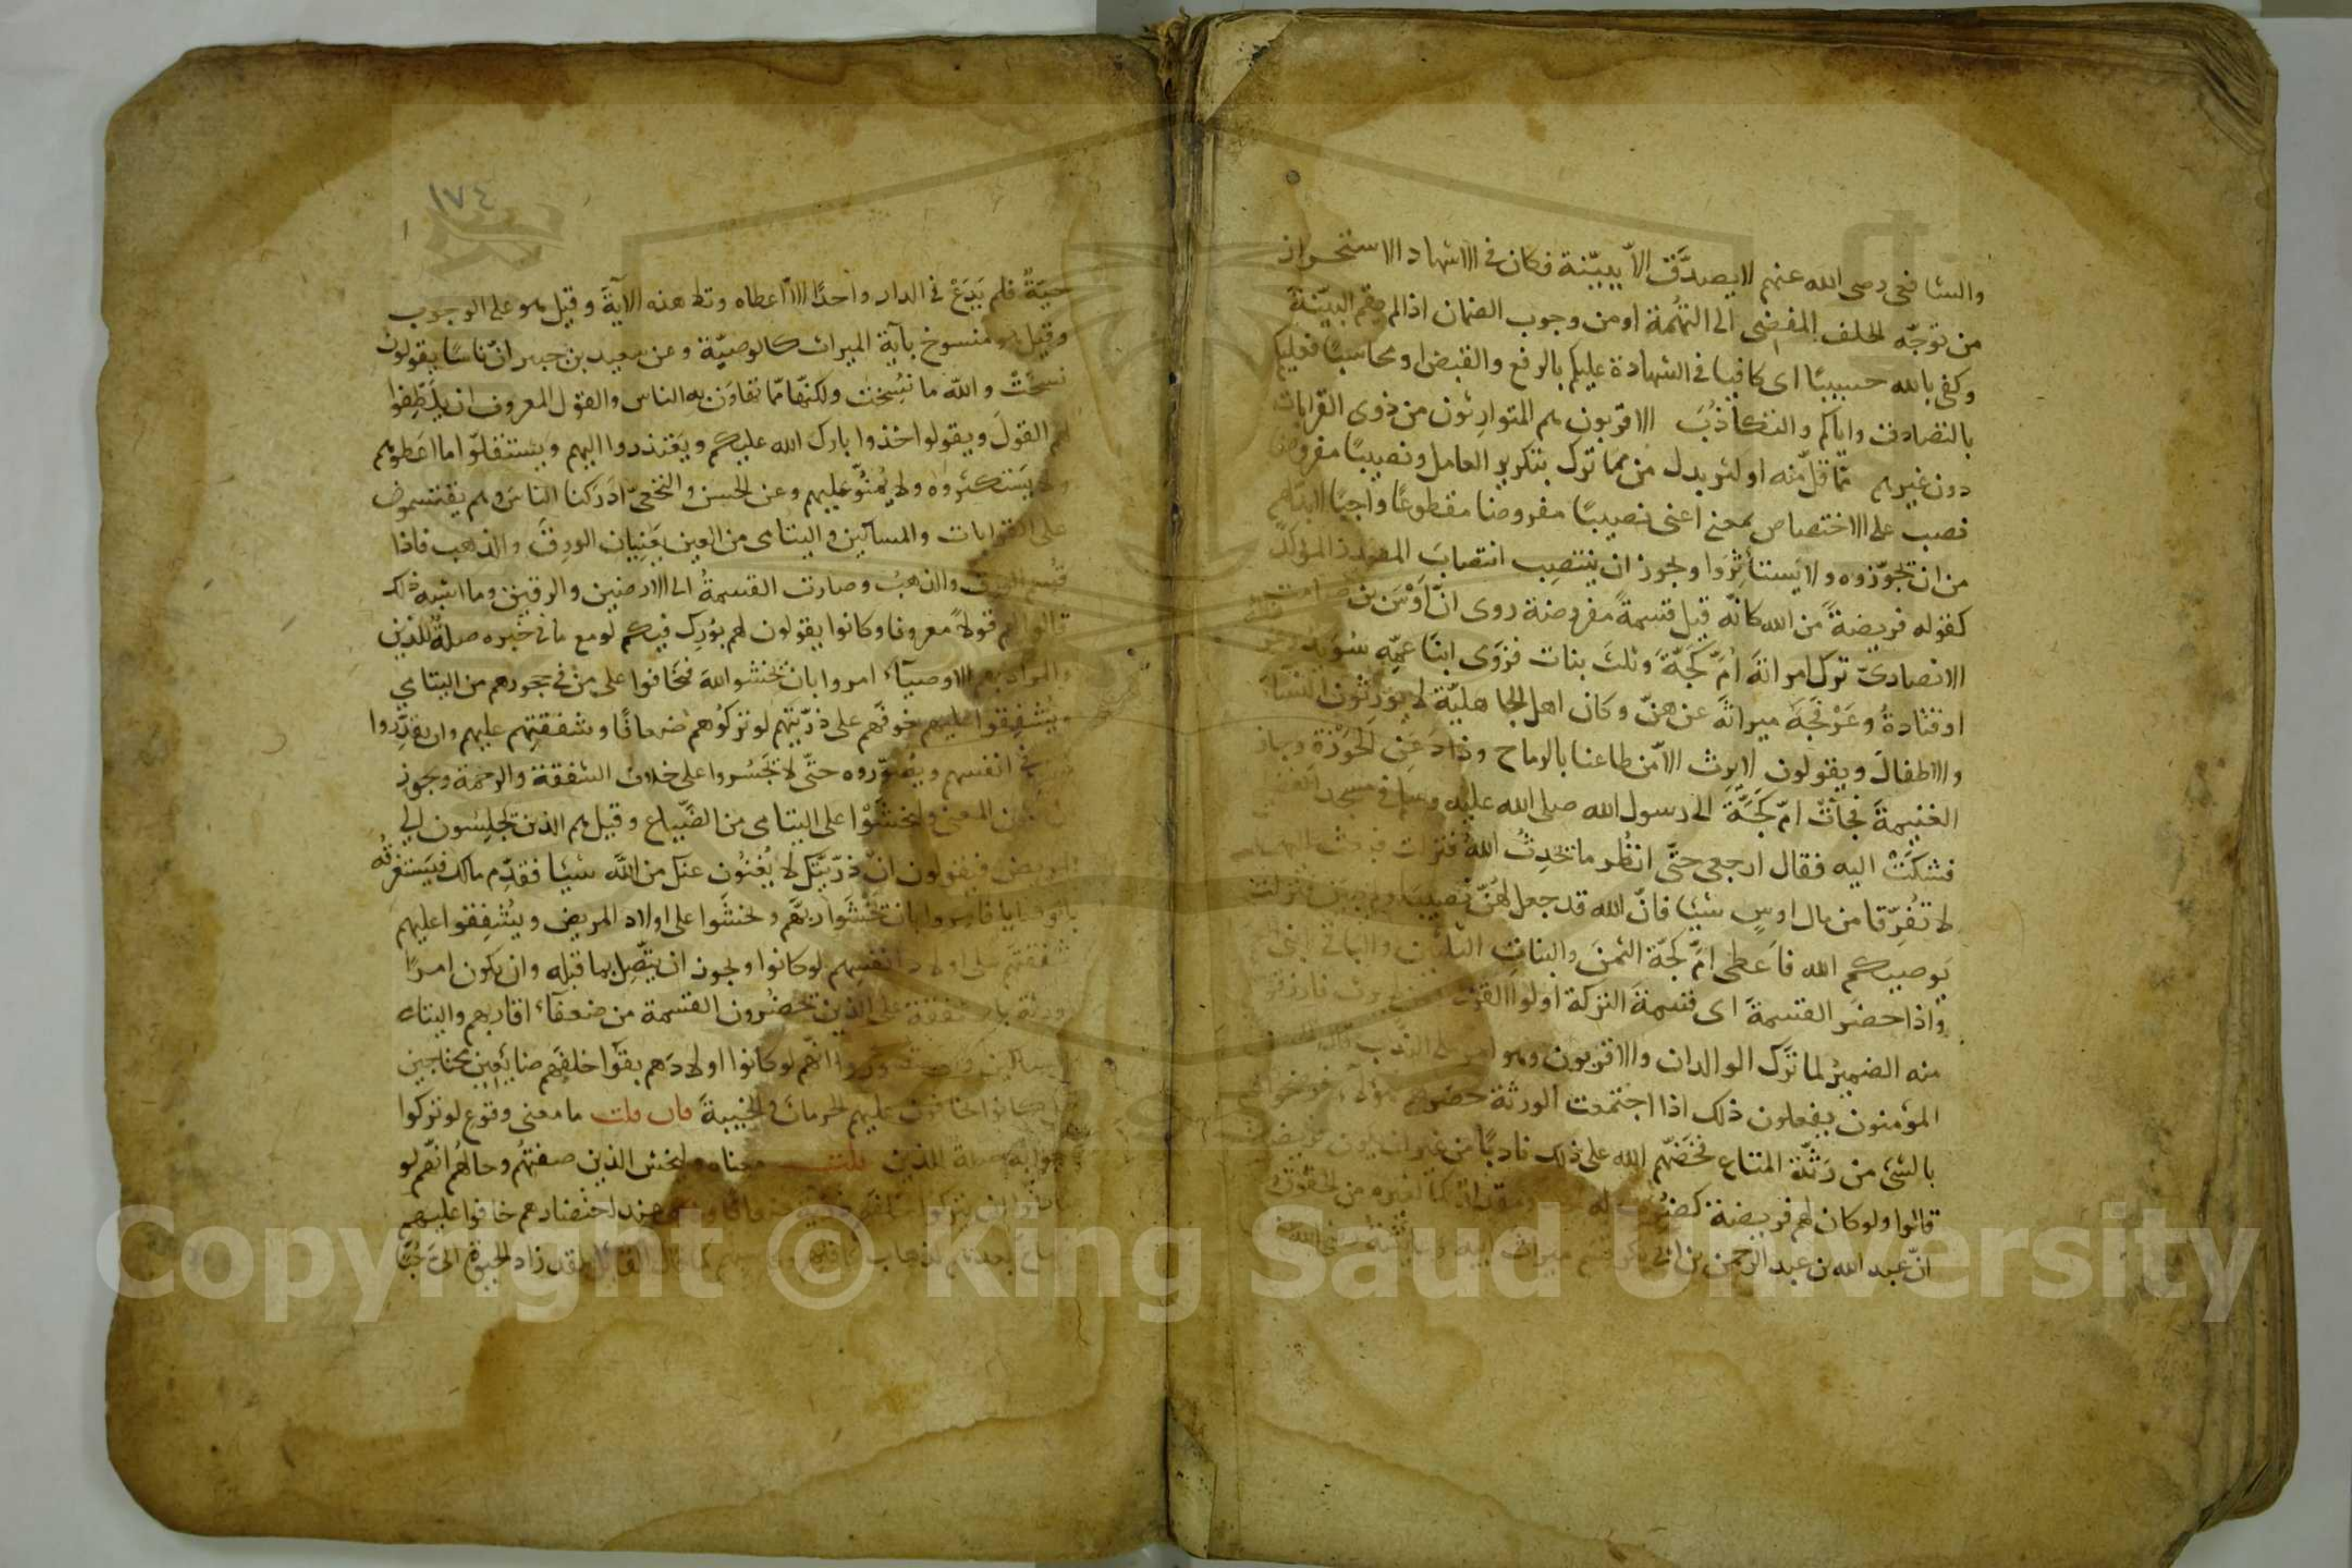 والشافعى رضى الله عنهم لا يصدَّق الاّ ببيّنة فكان فى الاشهاد الاستحراز
من توجّه الحلف المفضى الى التهُمة او من وجوب الضمان اذا لم يقم البيّنة
وكفى بالله حسيبًا اى كافيا فى الشهادة عليكم بالرفع والقبض او محاسبًا فعليكم
بالتصادق واياكم والتكاذُبَ الاقربون هم المتوارِثون من ذوى القرابات
دون غيرهم ممّا قلّ منه او كثر بدل من مما ترك بتكرير العامل ونصيبًا مفروضا
نصب على الاختصاص بمعنى اعنى نصيبًا مفروضا مقطوعًا واجبًا لابدّلهم
من ان يحوّزوه ولا يستاثِرُوا ويجوز ان ينتصِب انتصابَ المصدر المؤكّد
كقوله فريضةً من الله كانّه قيل قسمةً مفروضة روى انّ اَوْسَ بن صامت
الانصارىّ ترك امراتَه اُمَّ كَجَّةَ وثلثَ بنات فزوَى ابنَا عمِّه سُوَيد
او قتادةُ وعَرْفَجَةُ ميراثَه عن هنّ وكان اهل الجاهليّة لا يورّثون النساءَ
والاطفالَ ويقولون لا يرِث الاّ من طاعنا بالرماح وذاد عَنِ الحَوْزةِ وحاز
الغنيمةَ فجآتْ امّ كَجَّةَ الى رسول الله صلى الله عليه وسلم فى مسجد الفضيخ
فشكَتْ اليه فقال ارجعى حتّى انظُر ما يحْدِثُ اللهُ فنزلت فبعث اليهما
لا تُفرِّقا من مال اوسٍ شيئا فانّ الله قد جعل لهنّ نصيبًا ولم يبيّن فنزلت
يوصيكم الله فاَعطى امَّ كجّة الثمنَ والبناتِ الثلثين والباقى ابنى العم
واذا حضَر القسمةَ اى قسمةَ التركة اولوا القربى ممن لا يرث فارزقوهم
منه الضميرُ لما ترَك الوالدان والاقربون وهو امر على الندب
المؤمنون يفعلون ذلك اذا اجتمعت الورثة حضرهم هؤلاء فرضخوا لهم
بالشئ من رَثّة المتاع فحضّهم الله على ذلك تاديبًا من غير ان يكون فريضة
قالوا ولو كان لهم فريضة لضُرب له حد ومقدار كما لغيره من الحقوق وروى
انّ عبد الله بن عبد الرحمن بن ابى بكر قسم ميراث ابيه وعائشة رضى الله عنها
١٧٤
حيّةٌ فلم يَدَعْ فى الدار واحدًا الاّ اعطاه وتلا هذه الآيةَ وقيل هو على الوجوب
وقيل هو منسوخ بآية الميراث كالوصيّة وعن سعيد بن جبير انّ ناسًا يقولون
نسخَتْ والله ما نُسِخت ولكنّها ممّا تهاون به الناس والقول المعروف ان يلَطِّفوا
لهم القولَ ويقولوا خذوا بارك الله عليكم ويعَتذروا اليهم ويستقلّوا ما اعطوهم
ولا يَستكثروه ولا يمُنّوا عليهم وعن الحسن والنخعىّ ادركنا الناسَ وهم يقتسمون
على القرابات والمساكين واليتامى من العين يَعنِيان الورِقَ والذهب فاذا
قُسم الورق والذهبُ وصارت القسمةُ الى الارضين والرقيق وما اشبه ذلك
قالوا لهم قولاً معروفا وكانوا يقولون لهم بُورِك فيكم لو مع ما فى خبره صلةٌ للذين
والمراد بهم الاوصيآءُ امروا بان يخشوا اللهَ فيخَافوا على من فى حجورهم من اليتامى
ويُشفِقوا عليهم خوفَهم على ذرّيتهم لو تركُوهم ضعافًا وشفقتِهم عليهم وان يقدِّروا
ذلك فى انفسهم ويُصوّروه حتّى لا يَجْسُروا على خلاف الشفقة والرحمة ويجوز
ان يكون المعنى وليخشَوْا على اليتامى من الضَّياع وقيل هم الذين يجلِسون الى
المريض فيقولون انّ ذرّيتَك لا يُغنُون عنك من اللَّه شيئا فقدِّم مالك فيَستغرقُه
بالوصايا فامروا بان يَخْشَوا ربَّهم ويخشَوا على اولاد المريض ويُشفِقوا عليهم
شفقتَهم على اولاد انفسهم لو كانوا ويجوز ان يتّصِل بما قبله وان يكون امرًا
للورثة بالشفقة على الذين يحضُرون القسمة من ضعفآءِ اقاربهم واليتامى
والمساكين وان يتصوّروا انّهم لو كانوا اولادَهم بقَوا خلفَهم ضائِعين محتاجين
هل كانوا يخافون عليهم الحرمانَ والخيبةَ فان قلت ما معنى وقوع لو تركوا
وجوابه صلة للذين قلت معناه وليخش الذين صفتُهم وحالُهُم انّهم لو
شارفوا ان يتركوا خلفهم ذرية ضعافا وذلك عند احتضارهم خافوا عليهم
الضياع بعدهم لذهاب كافلهم وكاسبهم كما قال القائل لقد زاد الحيوة الىّ حُبًّا
Copyright © King Saud University